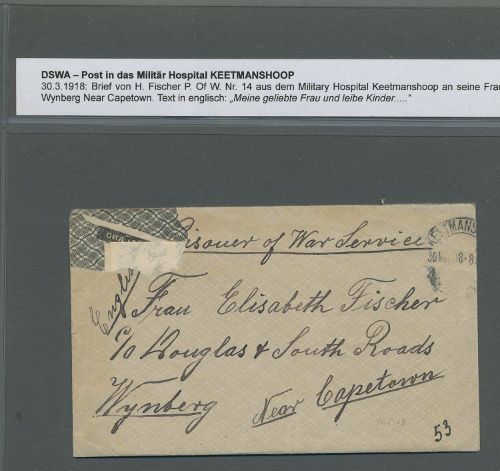 DSWA – Post in das Militär Hospital KEETMANSHOOP
30.3.1918: Brief von H. Fischer P. Of W. Nr. 14 aus dem Military Hospital Keetmanshoop an seine Frau
Wynberg Near Capetown. Text in englisch: „Meine geliebte Frau und leibe Kinder....."
Prisoner of War Service
KEETMANS
Frau Elisabeth Fischer
C/o Douglas & South Roads
Wynberg Near Capetown
53